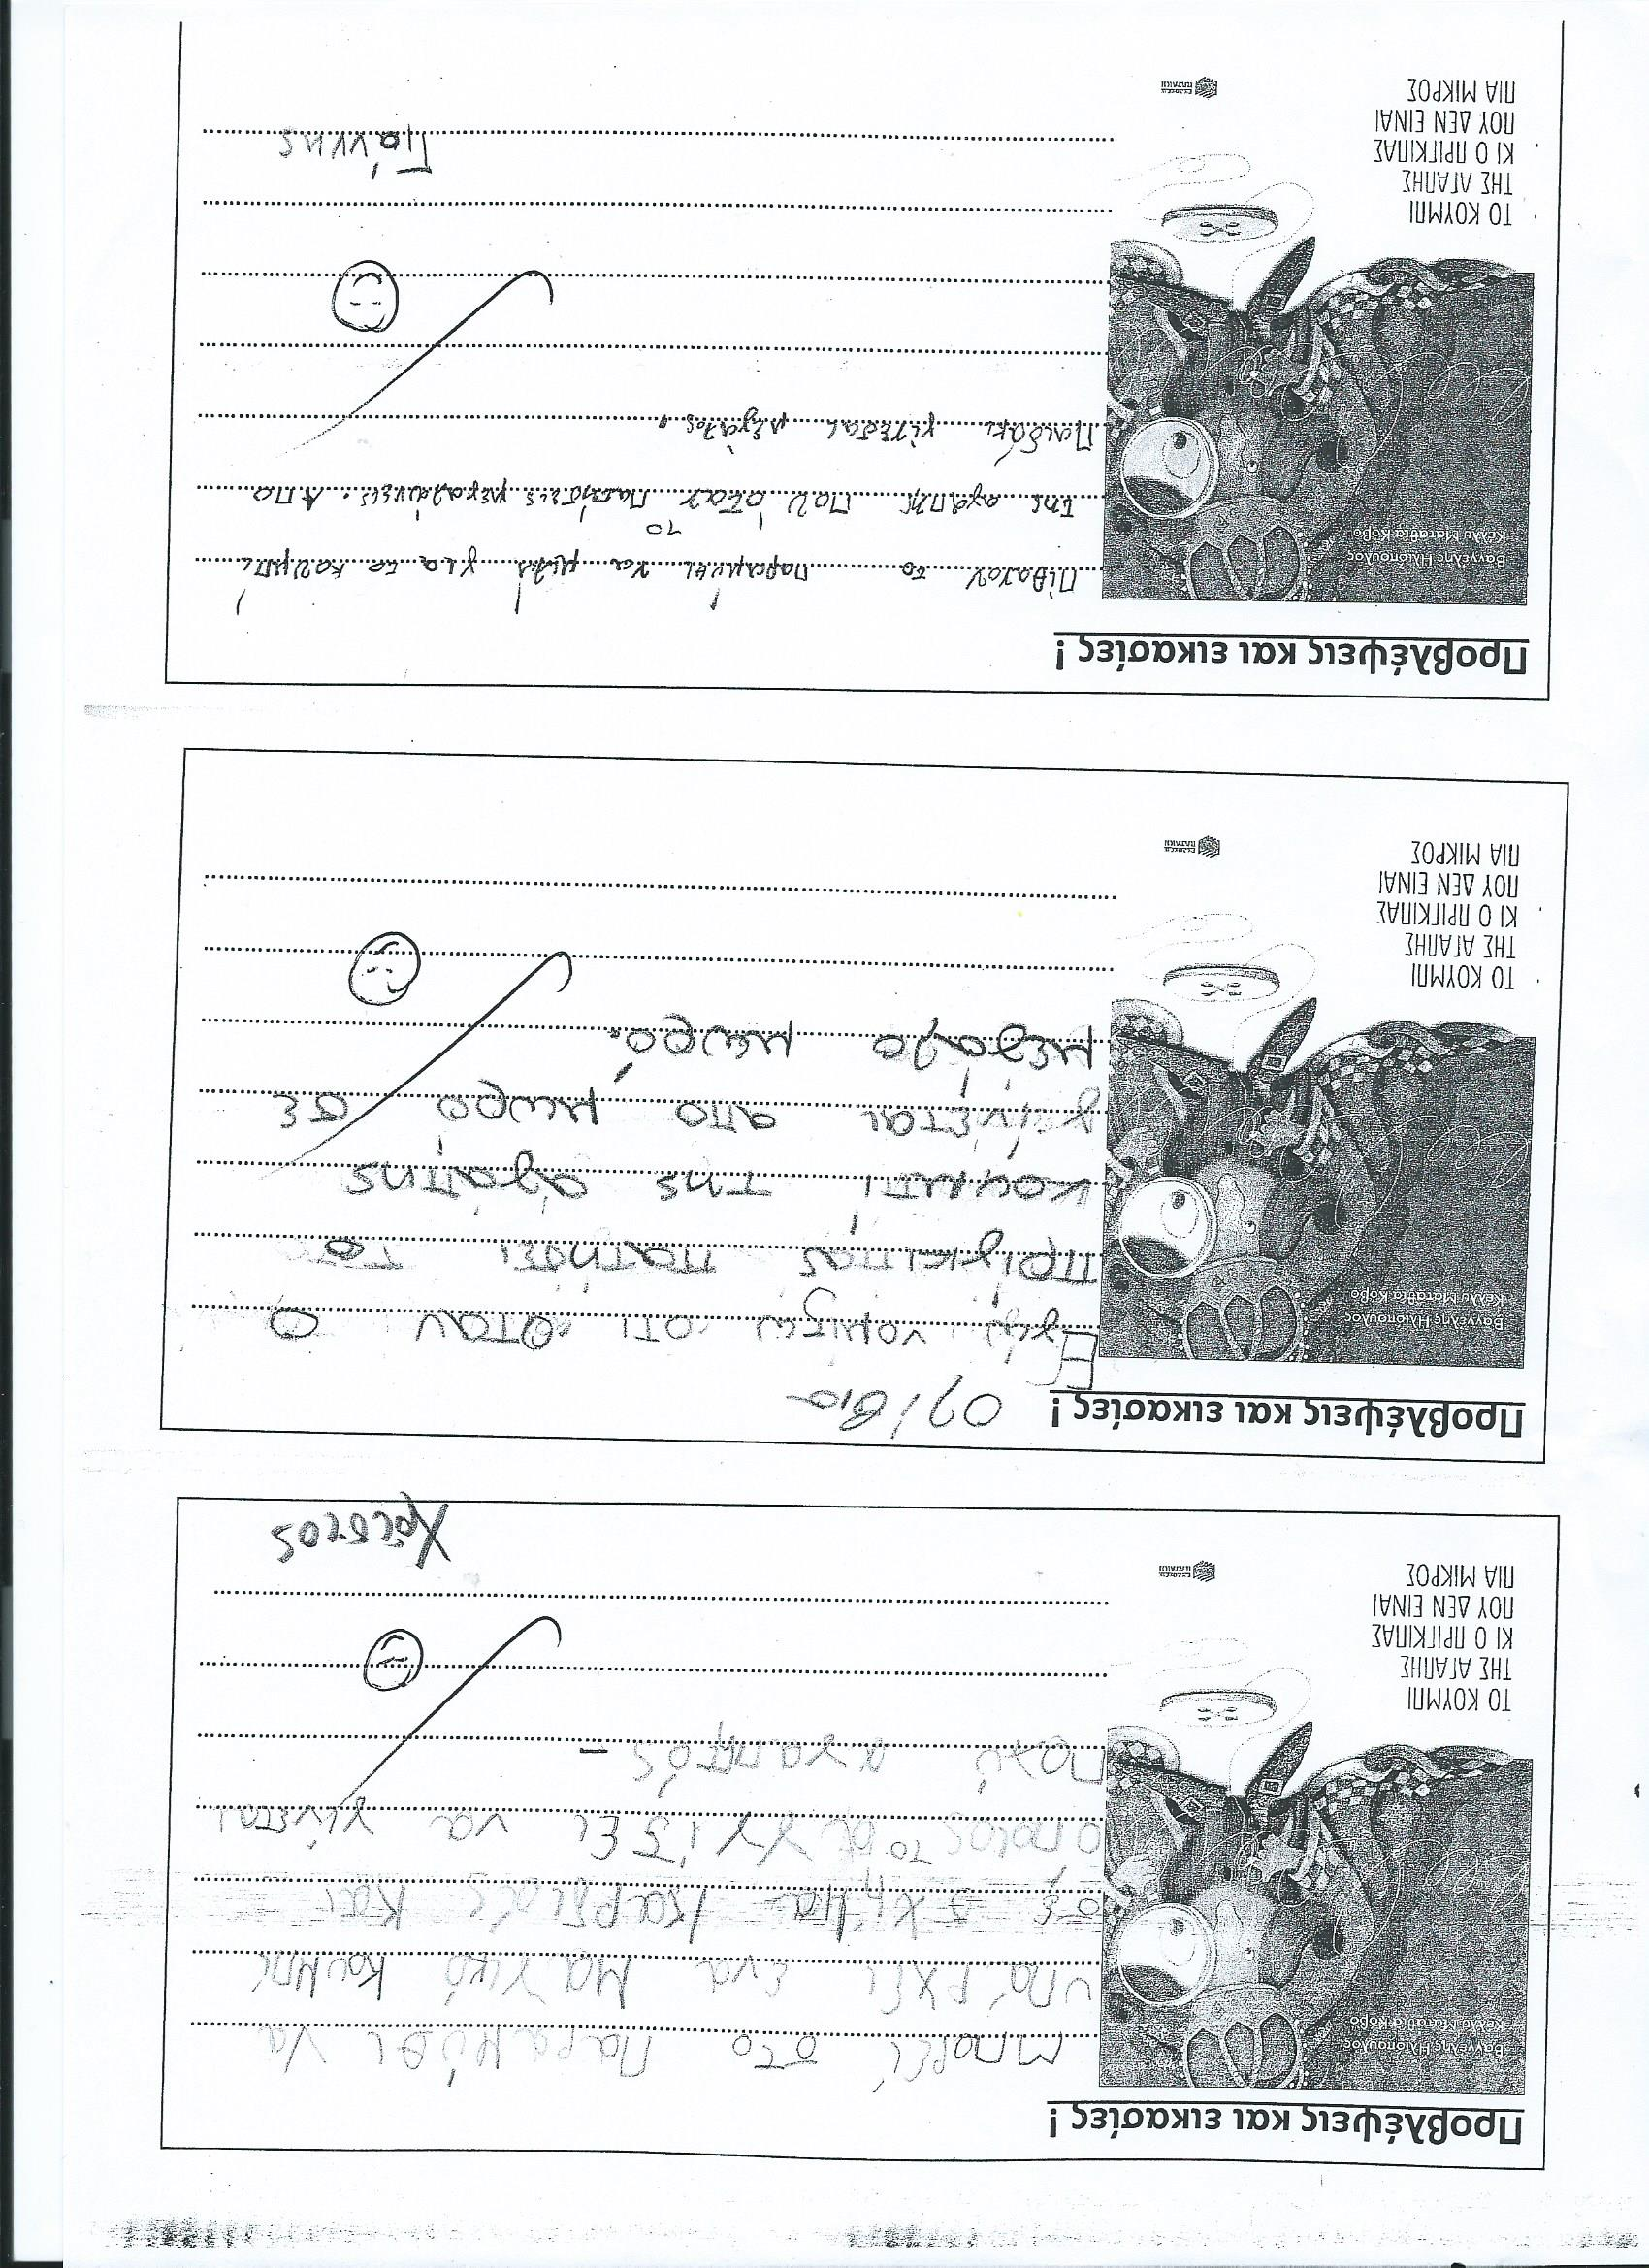 Προβλέψεις και εικασίες!
Βαγγέλης Ηλιόπουλος
Κέλλυ Ματαθία Κόβο
ΤΟ ΚΟΥΜΠΙ
ΤΗΣ ΑΓΑΠΗΣ
ΚΙ Ο ΠΡΙΓΚΙΠΑΣ
ΠΟΥ ΔΕΝ ΕΙΝΑΙ
ΠΙΑ ΜΙΚΡΟΣ
Μπορεί στο παραμύθι να
υπάρχει ένα μαγικό κουμπί
σε σχήμα καρδιάς και
όποιος το αγγίζει να γίνεται
πολύ αγαπητός
Χρίστος
Προβλέψεις και εικασίες!
Ολβία
Βαγγέλης Ηλιόπουλος
Κέλλυ Ματαθία Κόβο
ΤΟ ΚΟΥΜΠΙ
ΤΗΣ ΑΓΑΠΗΣ
ΚΙ Ο ΠΡΙΓΚΙΠΑΣ
ΠΟΥ ΔΕΝ ΕΙΝΑΙ
ΠΙΑ ΜΙΚΡΟΣ
Εγώ νομιζω οτι οταν ο
πρίγκιπας πατησει το
κουμπί της αγάπης
γείνεται απο μωρό σε
μεγάλο μωρό.
Προβλέψεις και εικασίες!
Βαγγέλης Ηλιόπουλος
Κέλλυ Ματαθία Κόβο
ΤΟ ΚΟΥΜΠΙ
ΤΗΣ ΑΓΑΠΗΣ
ΚΙ Ο ΠΡΙΓΚΙΠΑΣ
ΠΟΥ ΔΕΝ ΕΙΝΑΙ
ΠΙΑ ΜΙΚΡΟΣ
Πιθανον το παραμύθι να μιλά για το κουμπί
της αγαπης που όταν το πατήσεις μεγαλώνεις. Απο
παιδάκι γίνεσαι μεγάλος.
Γιάννης